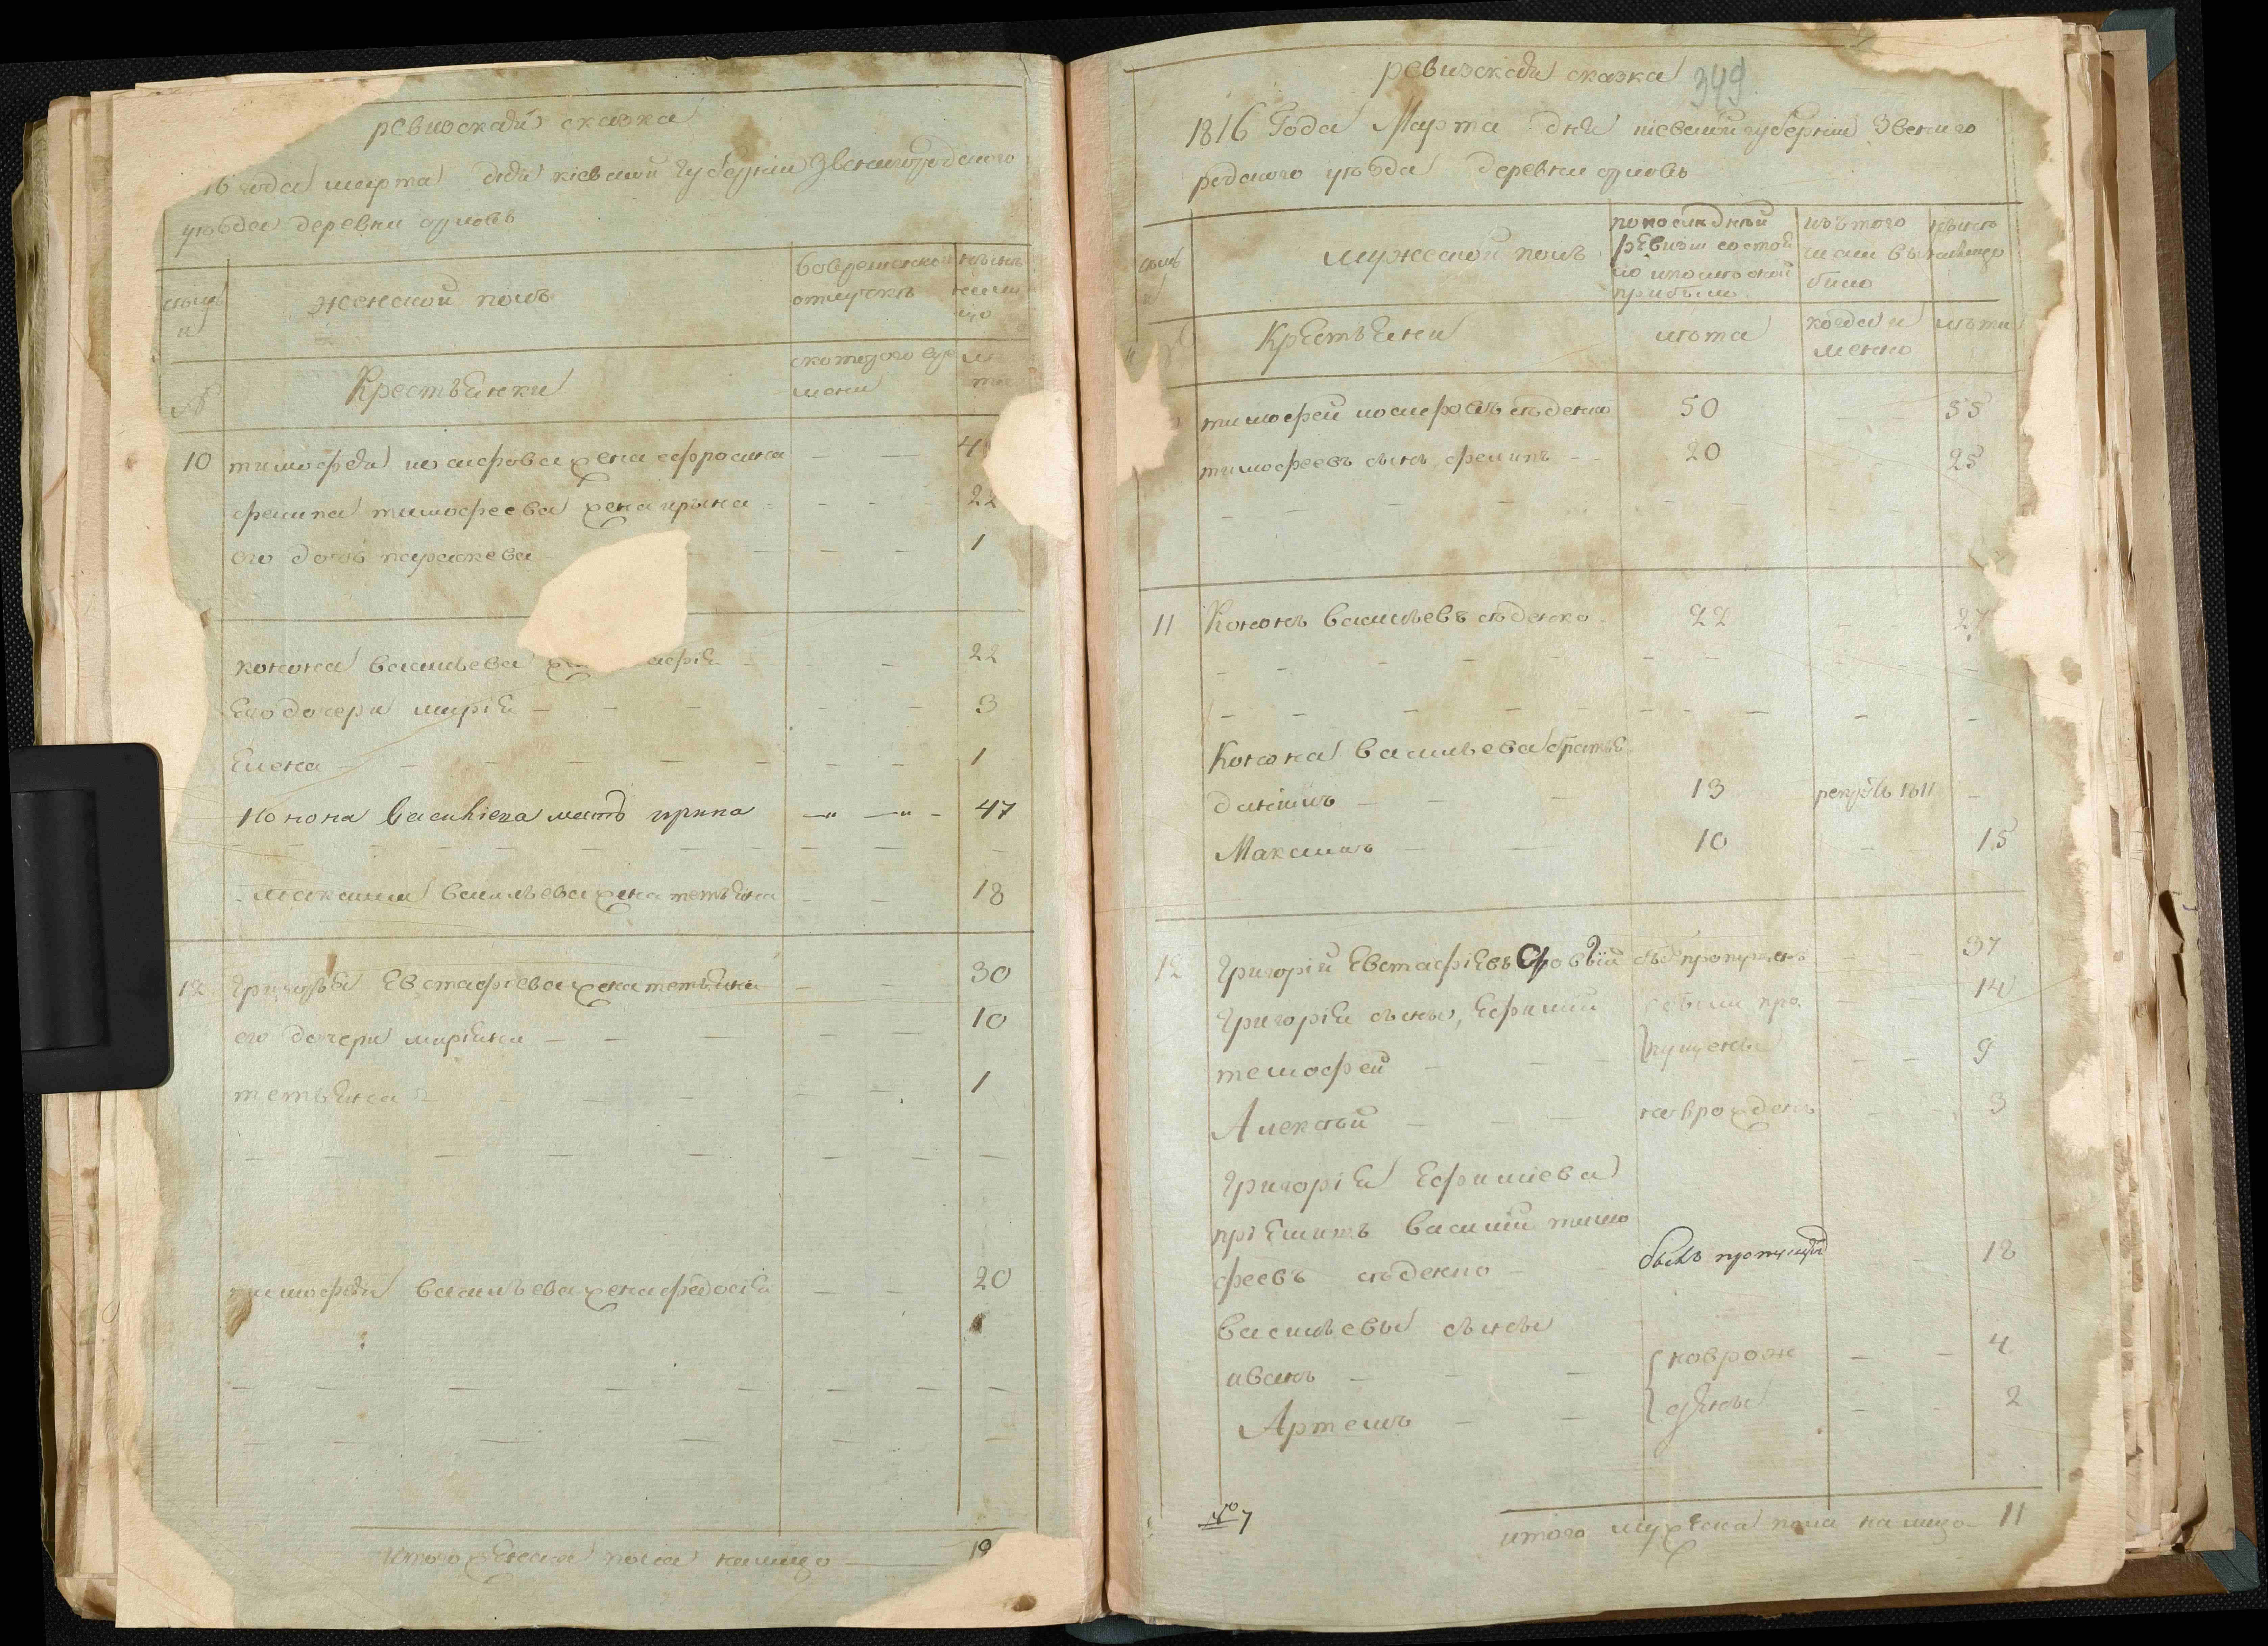 ревизская сказка
16 года марта дня кіевской губерніи Звенигородского
уезда деревни
семьи
женской полъ
во временной
отлучкѣ
нынѣ
налицо
№
Крестьянки
скоторого вре
мени
ле
та
10 тимофея иосифова жена ефросина — — 4
филипа тимофеева жена ирына - - - 22
его дочь параскева - — — — 1
конона васильева афія — — 22
Его дочери марія — — — - — 3
Елена — — — — — — — — 1
Конона Василіева мать ирина —„ —„ - 47
максима васильева жена тетьяна — — 18
12 Григорья Евстафіева жена тетьяна — — 30
его дочери маріяна — — — — — 10
тетьяна — — — — — — — 1
тимофея васильева жена федосія — — 20
итого женска пола налицо — 19
ревизская сказка 349
1816 Года Марта дня кіевской губерніи Звениго
родского уезда деревни
семьи
мужеской полъ
по последней
ревизіи состоя
ло и после оной
прибыло
изъ того
числа вы
било
нынѣ
налицо
Крестьяни
лѣта
когда и
менно
лѣта
тимофей иосифовъ седенко 50 55
тимофеевъ сынъ филипъ - - 20 25
11 Кононъ васильевъ седенко - 22 27
Конона васильева братья
данило — — — 13 рекрутъ 1811 -
Максимъ — — 10 15
12 Григорій Евстафіевъ пропущенъ — — 37
Григорія сыны, Ефимій были про — 14
тимофей — — — пущены — — 9
Алексей — — — новрожденъ — 3
Григорія Ефиміева
пріемишъ василий тимо
феевъ седенко — былъ пропущенъ 18
васильевы сыны
иванъ — — — новрож — — 4
Артемъ — — дены — 2
№ 7
итого мужеска пола налицо — 11